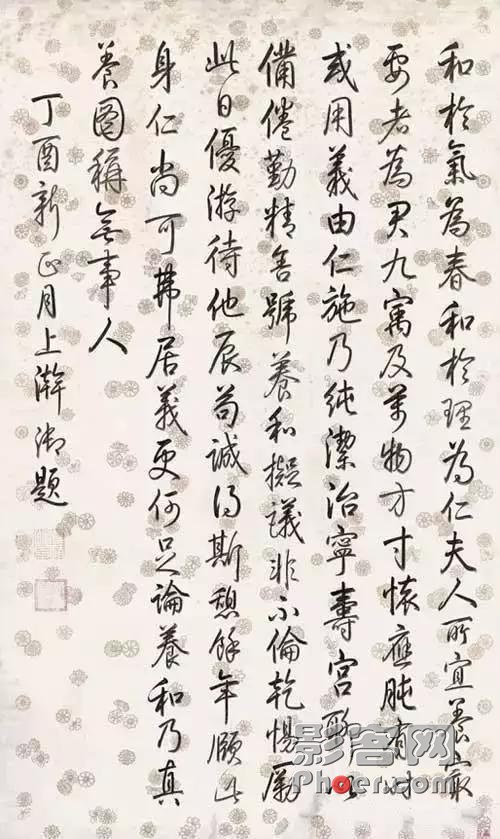 和於氣為春和於理為仁夫人所宜養最
要者為君九寓及萬物方寸懷應肫有時
或用義由仁施乃純潔治寧壽宮聊以
備倦勤精舍號養和擬議非不倫乾惕厲
此日優游待他辰苟誠得斯憩餘年願此
身仁尚可弗居義更何足論養和乃真
養圖稱無事人
丁酉新正月上澣御題
影客网
Phoer.com